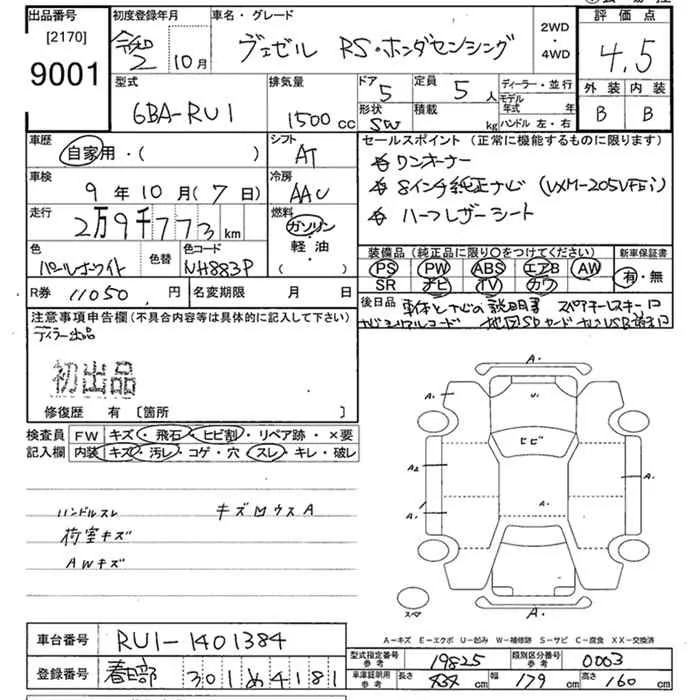 出品番号 初度登録年月 車名・グレード 2WD・4WD 評価点
[2170]
9001
令和2 10月 ヴェゼル RS・ホンダセンシング 4.5
型式 排気量 ドア 定員 ディーラー・並行 外装 内装
6BA-RU1 1500cc 5 5人 モデル年式 年 B B
形状 SW 積載 kg ハンドル左・右
車歴 シフト セールスポイント(正常に機能するものに限ります)
自家用・( ) AT ワンオーナー
車検 冷房 8インチ純正ナビ(VXM-205VFEi)
9年10月(7日) AAC ハーフレザーシート
走行 燃料
2万9千773km ガソリン・軽油・( )
色 色替 色コード 装備品(純正品に限り○をつけてください) 新車保証書
パールホワイト NH883P PS PW ABS エアB AW 有・無
SR ナビ TV カワ
R券 11050円 名変期限 月 日 後日品 車体とナビの説明書 スペアキーレスキー
注意事項申告欄(不具合内容等は具体的に記入して下さい) 地図SDカード
ディラー出品
初出品
修復歴 有[箇所 ]
検査員 FW キズ・飛石・ヒビ割・リペア跡・×要
記入欄 内装 キズ・汚レ・コゲ・穴・スレ・キレ・破レ
ハンドルスレ キズ
荷室キズ
AWキズ
A.
A.
U.
ヒビ
A2
A.
A.
A.
スペア
A-キズ E-エクボ U-凹み W-補修跡 S-サビ C-腐食 XX-交換済
車台番号 RU1-1401384
型式指定番号 参考 19825 類別区分番号 参考 0003
登録番号 春日部 301 め 4181
車庫証明用 参考 長さ 434cm 幅 179cm 高さ 160cm